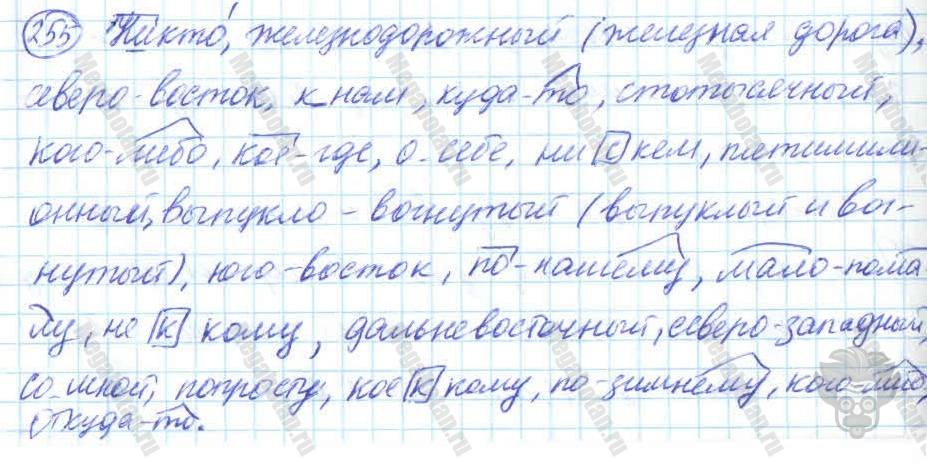 255 Никто́, железнодорожный (железная дорога),
северо-восток, к нам, куда-то, стотысячный,
кого-либо, кое-где, о себе, ни с кем, пятимили-
онный, выпукло-вогнутый (выпуклый и вог-
нутый), юго-восток, по-нашему, мало-пома
лу, не к кому, дальневосточный, северо-западный,
со мной, попросту, кое к кому, по-зимнему, кого-либо,
откуда-то.